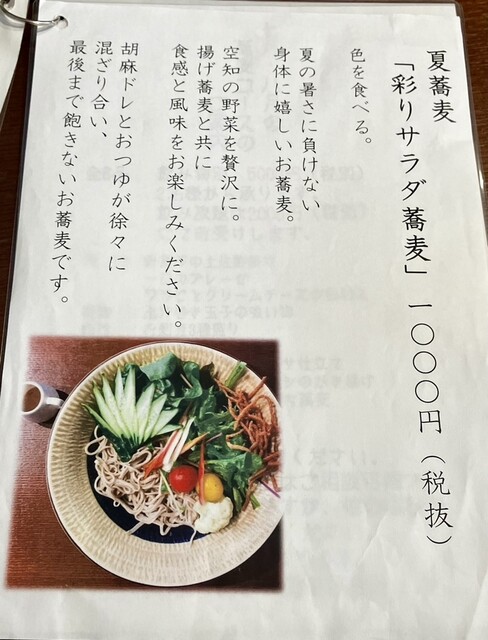 夏蕎麦
「彩りサラダ蕎麦」一〇〇〇円（税抜）
色を食べる。
夏の暑さに負けない
身体に嬉しいお蕎麦。
空知の野菜を贅沢に。
揚げ蕎麦と共に
食感と風味をお楽しみください。
胡麻ドレとおつゆが徐々に
混ざり合い、
最後まで飽きないお蕎麦です。